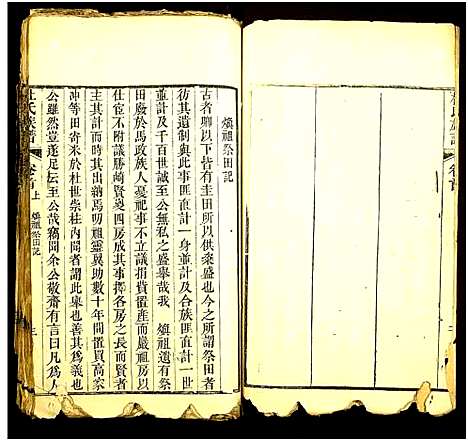 氏族譜
卷首
杜氏族譜
卷首上
煥祖祭田記
三
煥祖祭田記
古者卿以下皆有圭田所以供粢盛也今之所謂祭田者
彷其遺制與此事匪直計一身並計及合族匪直計一世
並計及百世至公無私之盛舉哉我 煥祖遺有祭
田廢於馬政族人憂祀事不立議捐貲置產而嚴祖房以
仕宦不附議勝崎賢夋四房成其事擇各房之長而賢者
主計而其卓越為叨祖靈異助數十年間置買高家
沖等田寄米於杜世崇柱內聞者謂此舉也善其為義也
公雖然豈遂足云至公哉竊聞余公敬齋有言曰凡為人